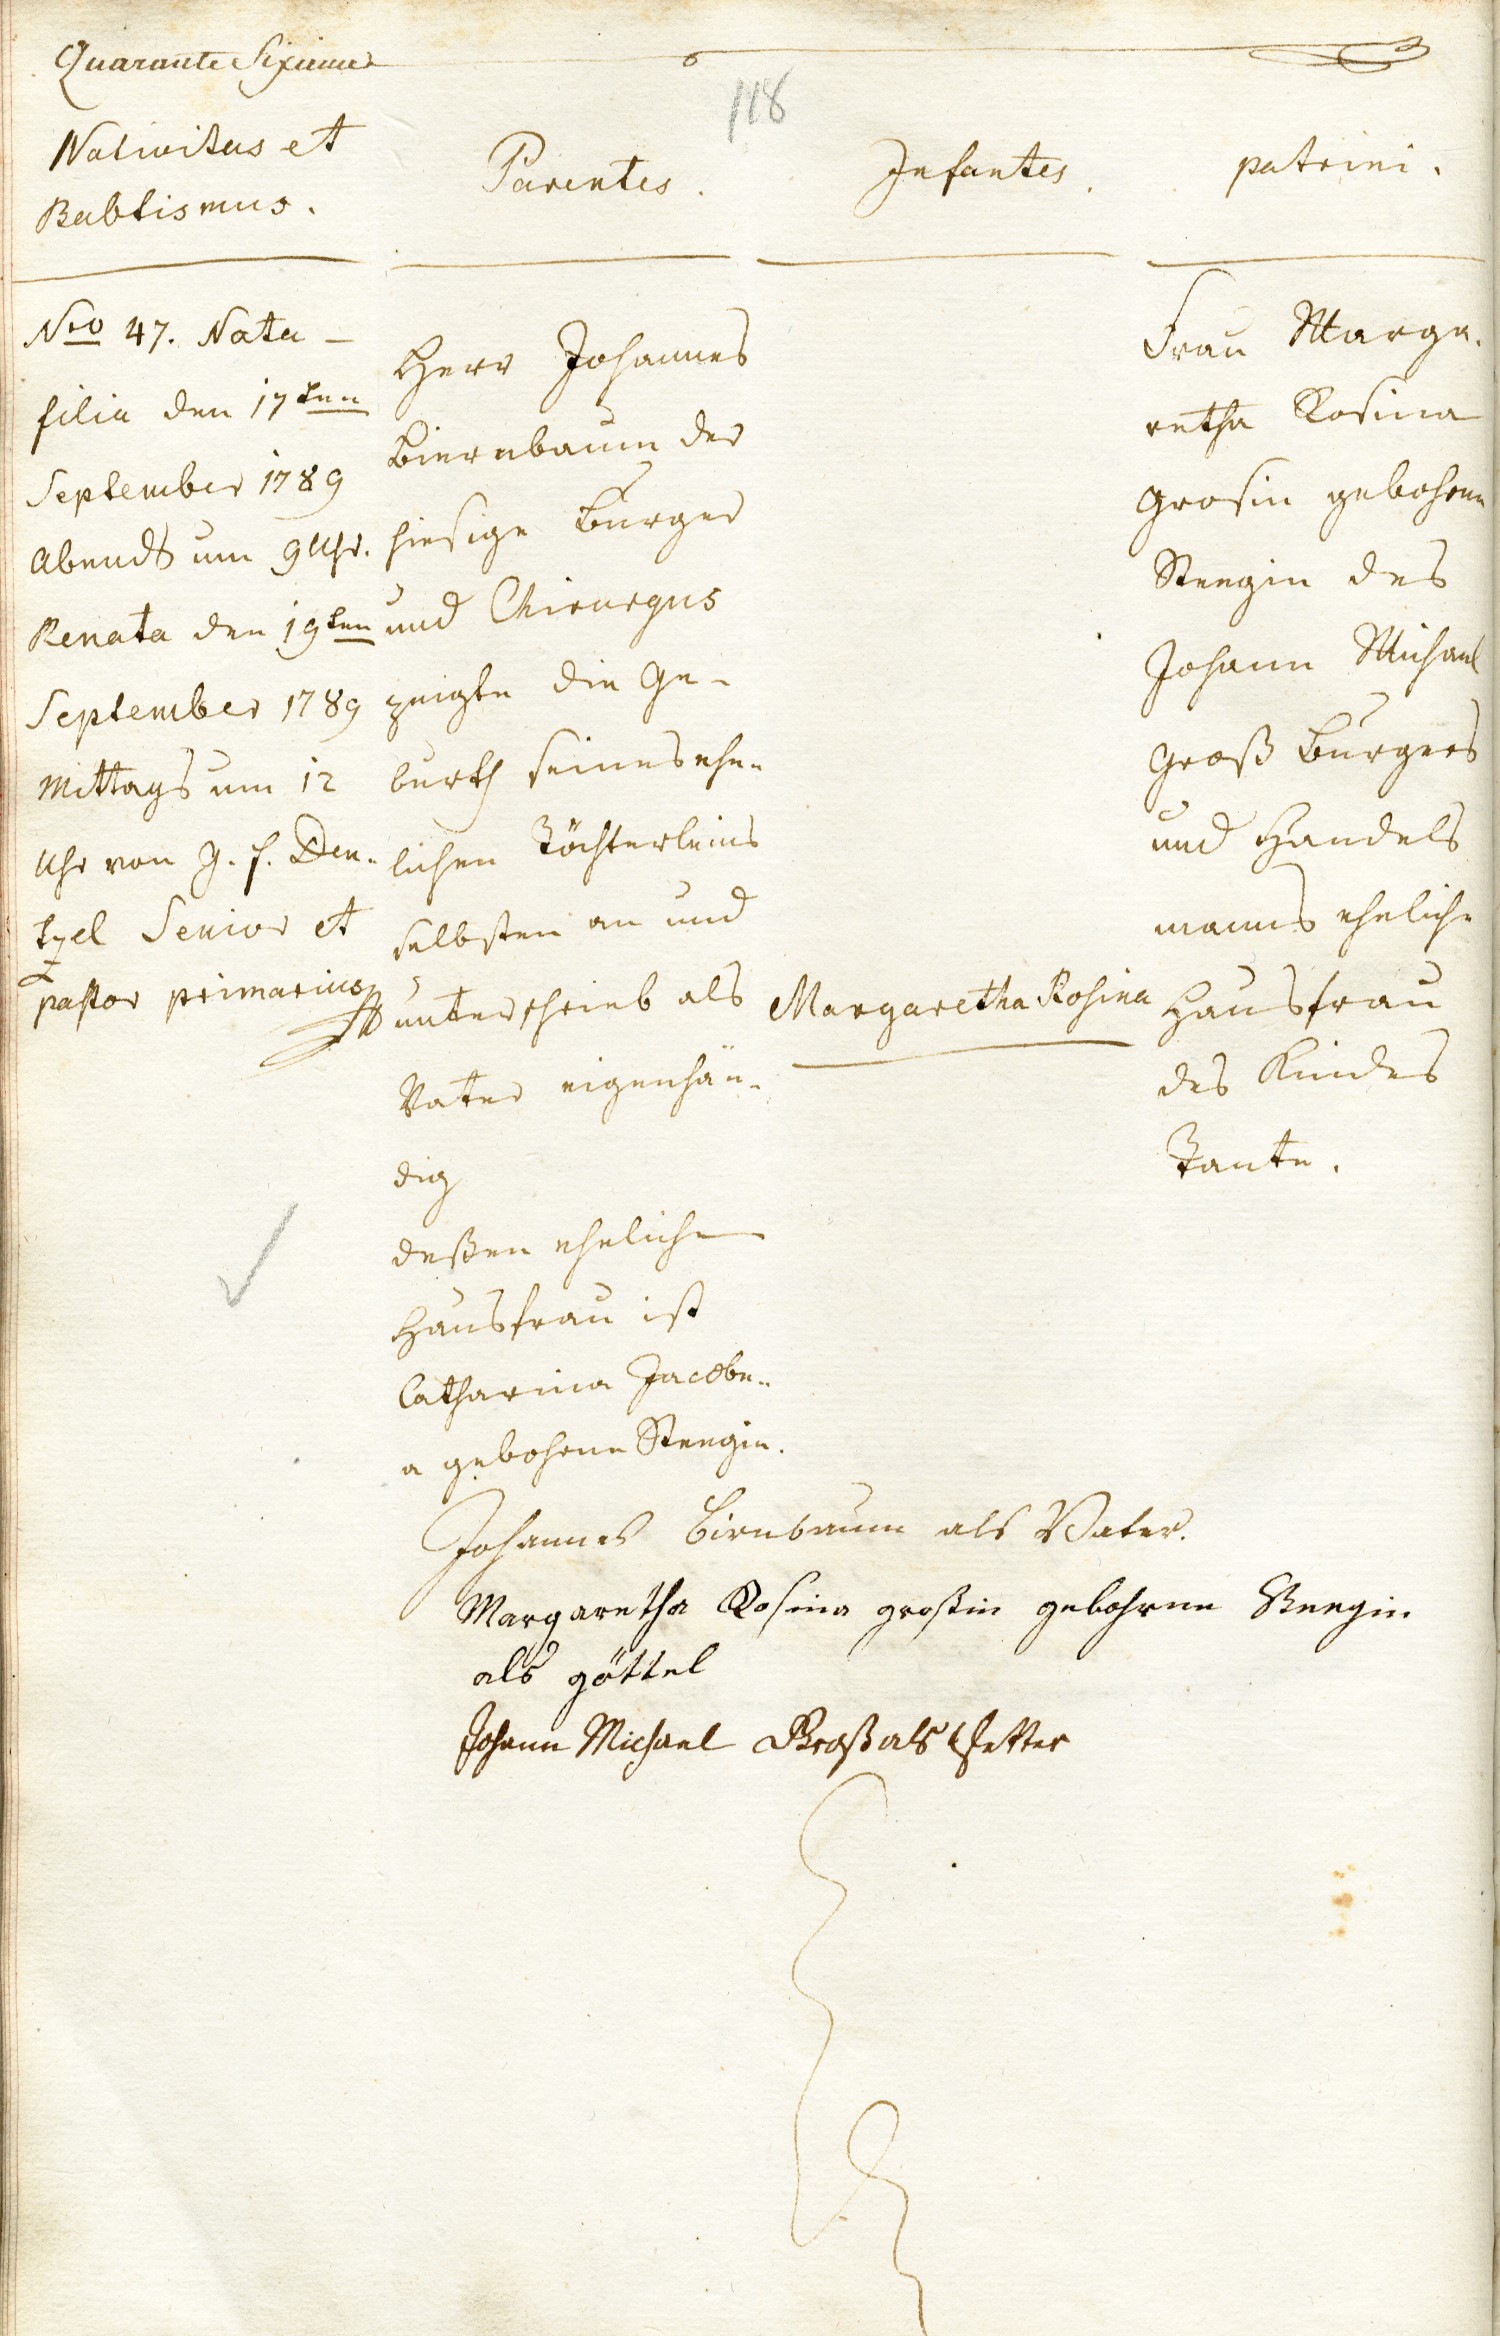 Quarante Sixieme
118
Nativitas et
Babtismus.
Parentes.
Infantes.
patrini.
Nro 47. Nata
filia den 17ten
September 1789
Abends um 9 Uhr.
Renata den 19ten
September 1789
Mittags um 12
Uhr von J. f. Den-
tzel Senior et
pastor primarius
Herr Johannes
Biernbaum der
hiesige Burger
und Chirurgus
zeigte die Ge-
burth seines ehe-
lichen Töchterleins
selbsten an und
unterschrieb als
Vater eigenhän-
dig
deßen eheliche
Hausfrau ist
Catharina Jacobe-
a gebohrne Steegin.
Margaretha Rosina
Frau Marga-
retha Rosina
Grosin gebohrne
Steegin des
Johann Michael
Groß Burgers
und Handels
manns eheliche
Hausfrau
des Kindes
Tante.
Johannes Birnbaum als Vater.
Margaretha Rosina großin gebohrne Steegin
als göttel
Johann Michael Groß als Pfetter